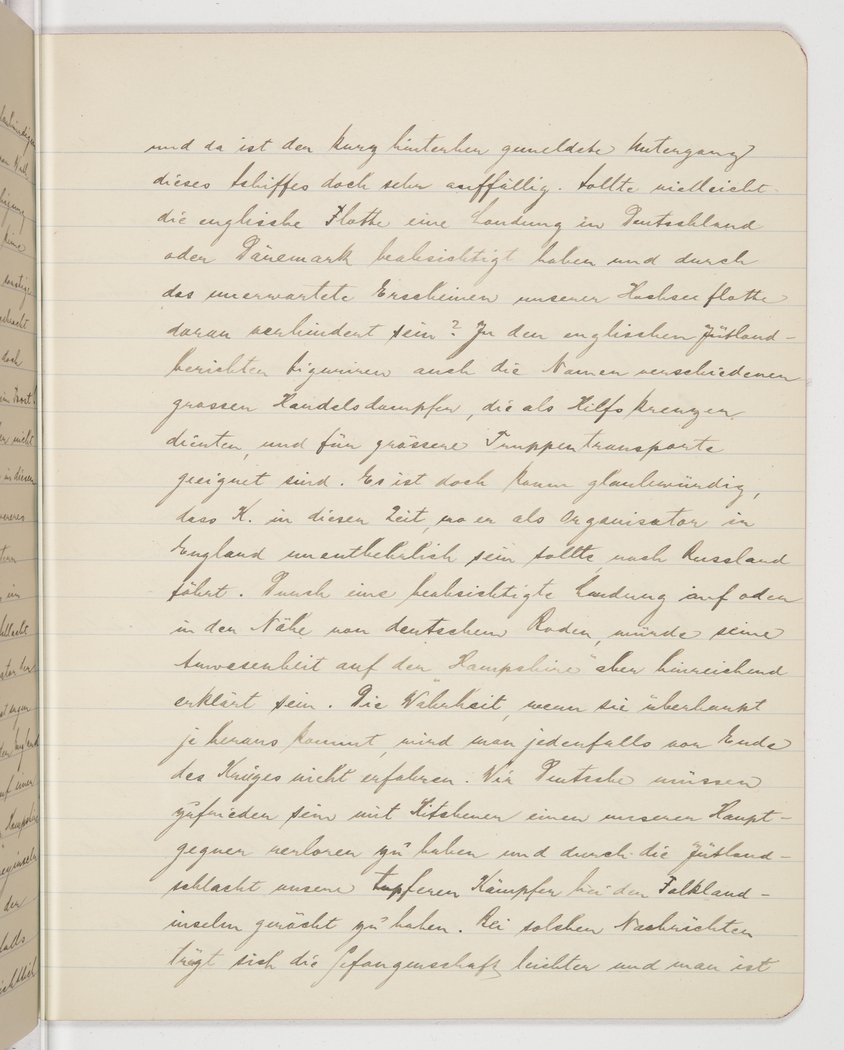 und da ist der kurz hinterher gemeldete Untergang
dieses Schiffes doch sehr auffällig. Sollte vielleicht
die englische Flotte eine Landung in Deutschland
oder Dänemark beabsichtigt haben und durch
das unerwartete Erscheinen unserer Hochseeflotte
daran verhindert sein? In den englischen Jütland-
berichten figurieren auch die Namen verschiedener
grossen Handelsdampfer, die als Hilfskreuzer
dienten, und für grössere Truppentransporte
geeignet sind. Es ist doch kaum glaubwürdig,
dass K. in dieser Zeit, wo er als Organisator in
England unentbehrlich sein sollte, nach Russland
fährt. Durch eine beabsichtigte Landung auf oder
in der Nähe von deutschem Boden, würde seine
Anwesenheit auf der "Hampshire" aber hinreichend
erklärt sein. Die Wahrheit, wenn sie überhaupt
je heraus kommt, wird man jedenfalls vor Ende
des Krieges nicht erfahren. Wir Deutsche müssen
zufrieden sein mit Kitchener einen unserer Haupt-
gegner verloren zu haben und durch die Jütland-
schlacht unsere tapferen Kämpfer bei den Falkland-
inseln gerächt zu haben. Bei solchen Nachrichten
trägt sich die Gefangenschaft leichter und man ist